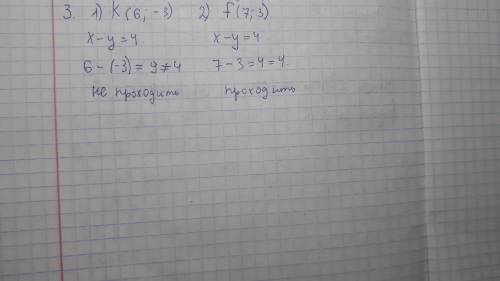 3. 1) K (6; -3) 2) f (7; 3)
x-y=4. x-y=4
6-(-3)=9≠4 7-3=4=4.
не проходить проходить